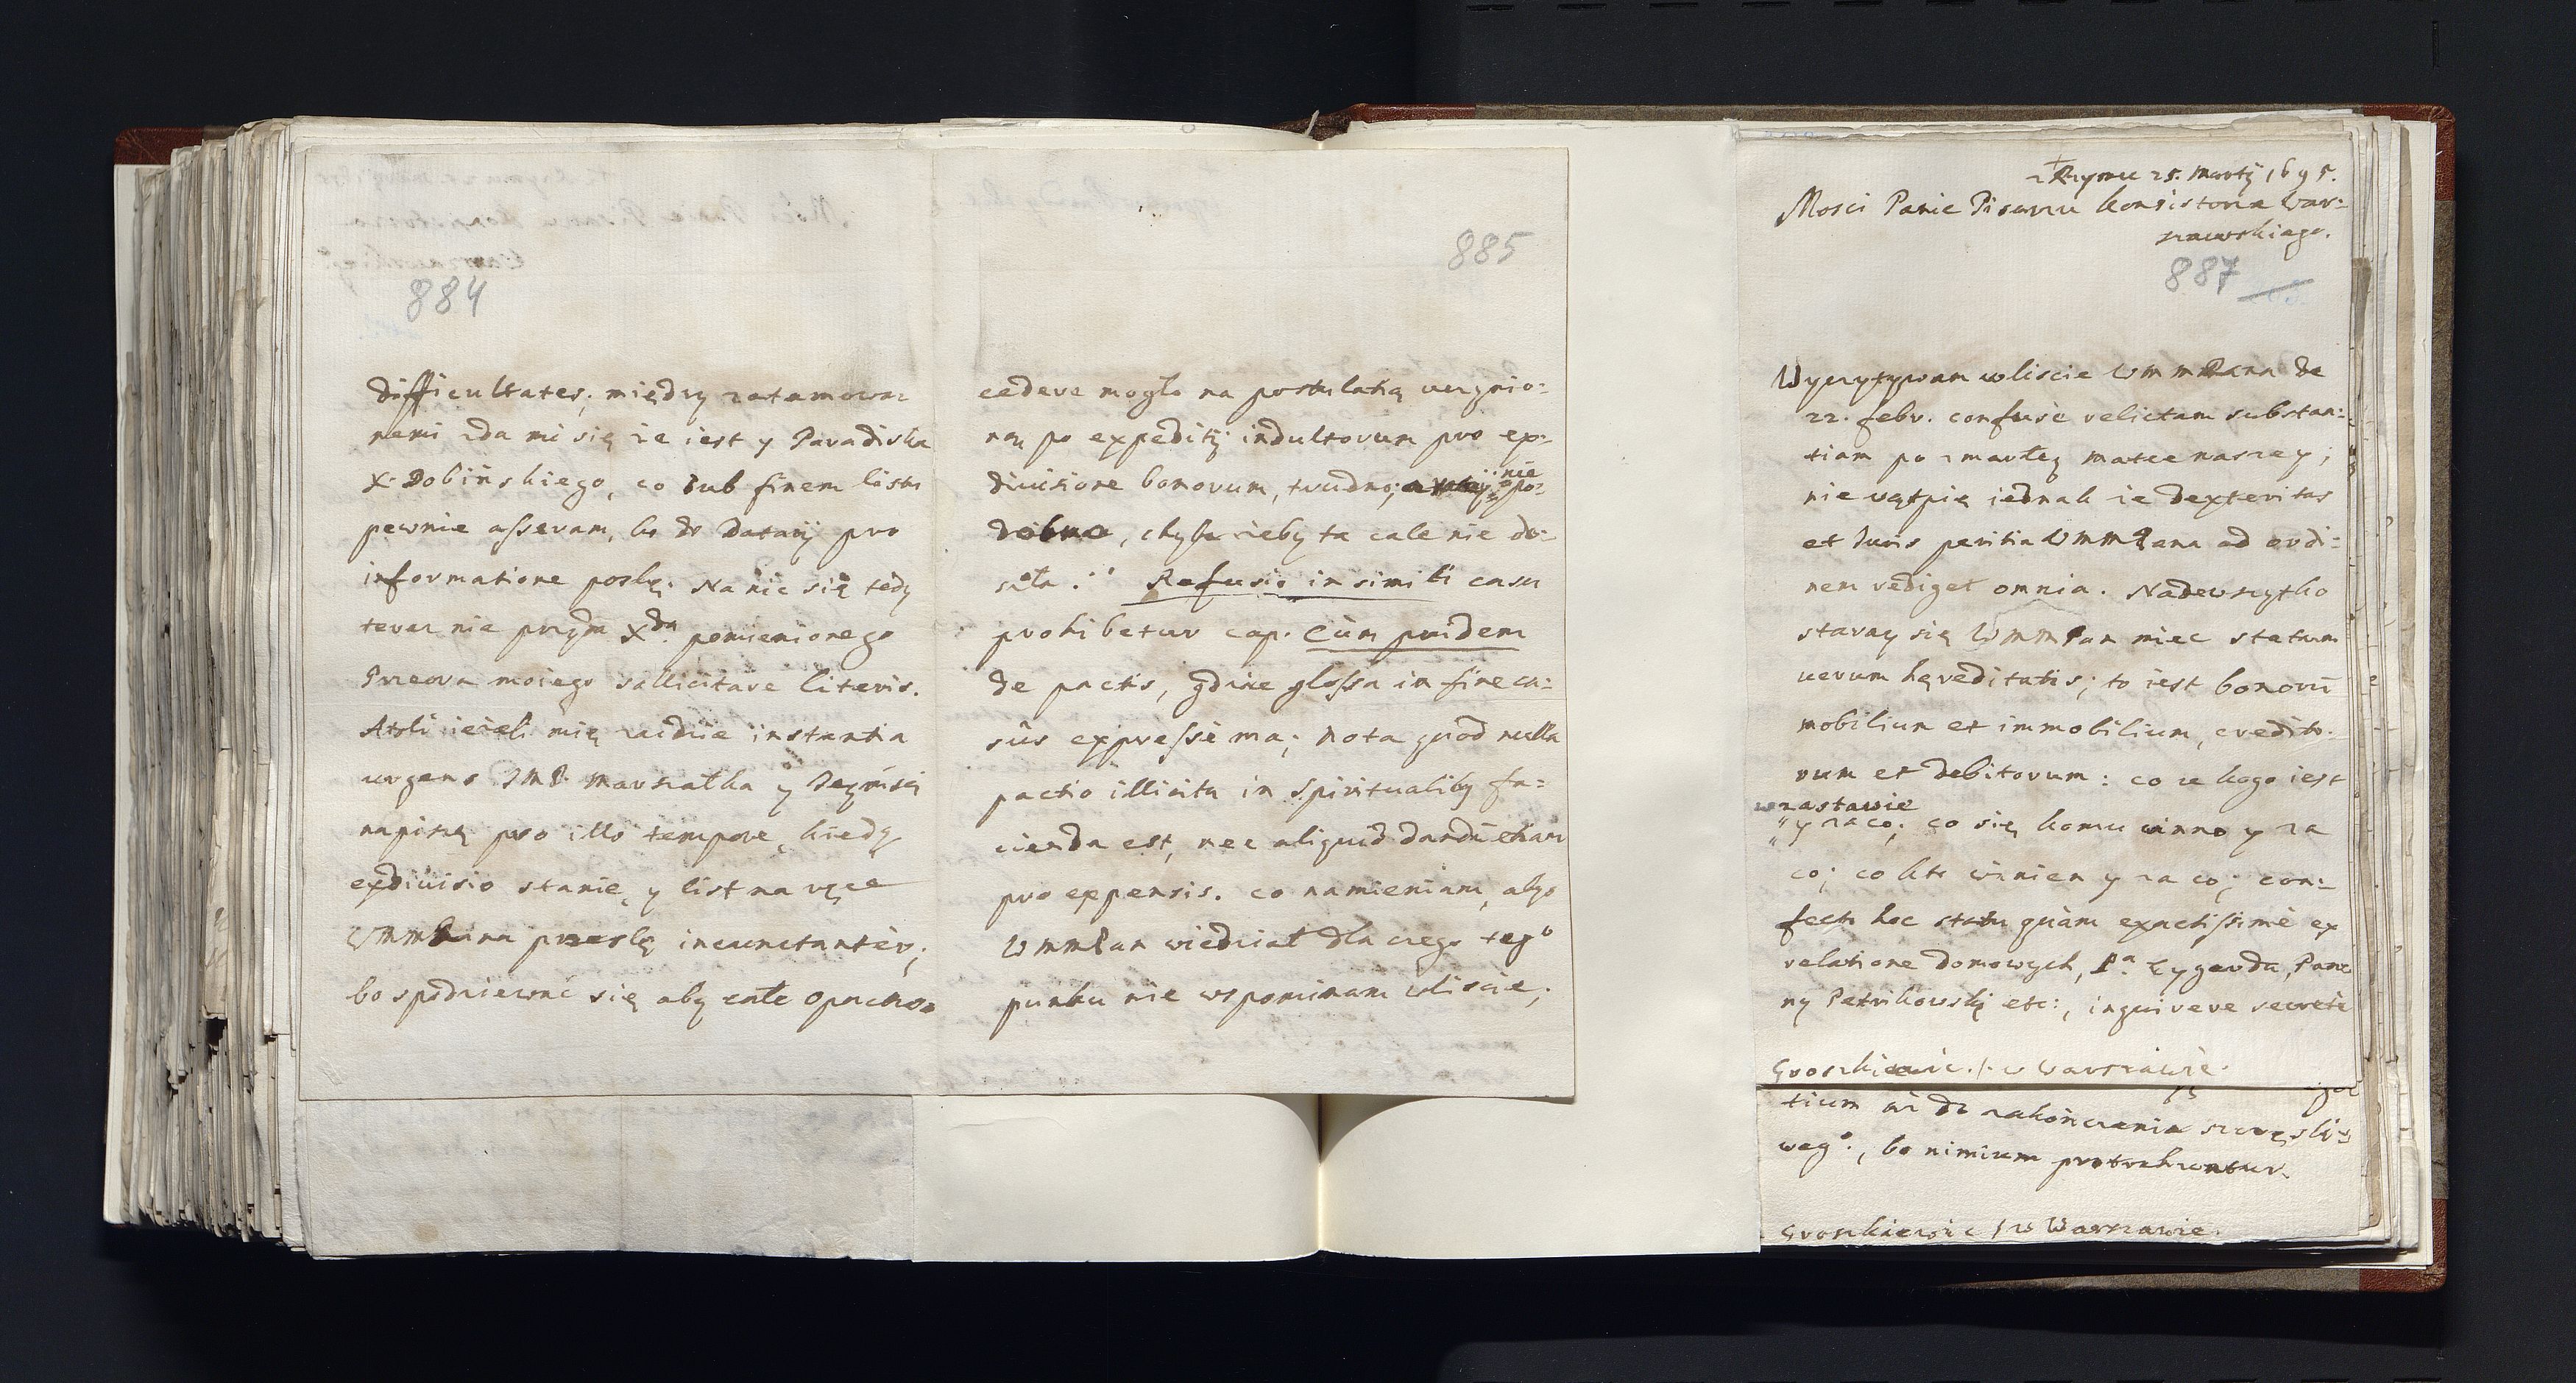 884
difficultates; między zatamowa-
nemi zda mi się że iest y Paradiska
X. Dobińskiego, co sub finem listu
pewnie asseram, bo do Datarij pro
informatione poslę. Na nic się tedy
teraz nie przyda X.da pomienionego
Przeora moiego sollicitare literis.
Atoli ieżeli mię zaidzie instantia
urgens JMP. Marszałka y
napiszę pro illo tempore, kiedy
exdiuisio stanie, y list na ręce
WmmPana przeslę incunctanter;
bo spodziewać się aby cale
885
cedere mogło na postulatią uczynio-
ną po expeditij indultorum pro ex-
diuisione bonorum, trudno; nie po-
dobna, chyba żeby ta cale nie do-
szła. Refusio in simili casu
prohibetur cap. Cùm pridem
de pactis, gdzie glossa in fine ca-
sûs expressè ma; Nota quòd nulla
pactio illicita in spiritualibꝯ fa-
cienda est, nec aliquid dandũ etiam
pro expensis. co namieniam, abyś
WmmPan wiedział dla czego tego
punktu nie wspominam w liscie;
z Rzymu 25. Martij 1695.
Mosci Panie Pisarzu konsistorza War-
szawskiego.
887
Wyczytywam w liscie WmmPana de
22. febr. confusè relictam substan-
tiam po zmarłey matce naszey;
nie wątpię iednak że dexteritas
et Juris peritia WmmPana ad ordi-
nem rediget omnia. Nadewszytko
staray się WmmPan miec statum
uerum hęreditatis; to iest bonorũ
mobilium et immobilium, credito-
rum et debitorum: co u kogo iest
w zastawie
y za co; co się komu winno y za
co; co kto winien y za co; con-
fecto hoc statu quàm exactissimè ex
relatione domowych, P.a Zygerda, Pan-
ny Petrikowskij etc:, inquirere secretè
Groszkiewic. / w Warszawie.
tium aż do zakończenia szczęsli-
wego., bo nimium protrahuntur.
Groszkiewic / w Warszawie.